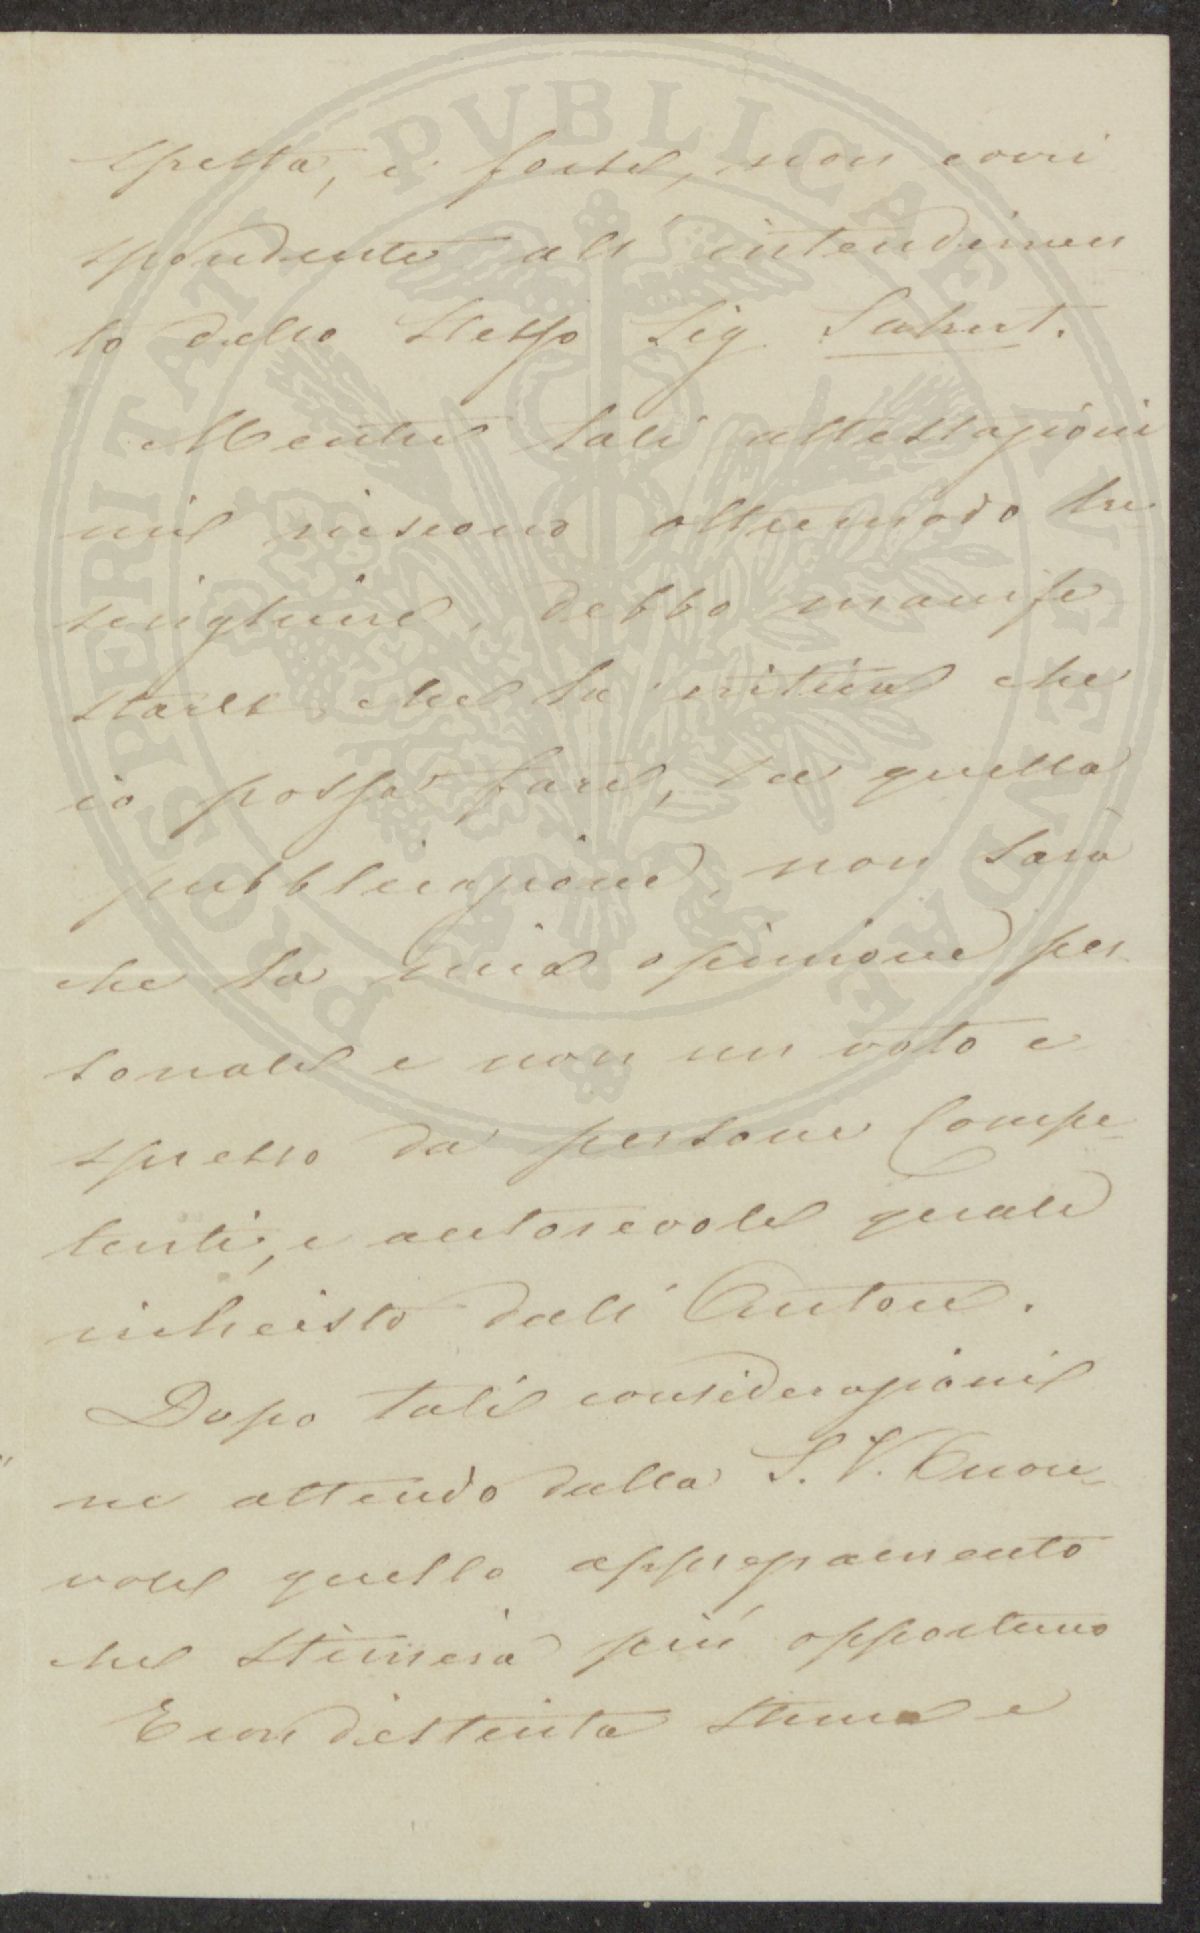 spetta, e forse, non corri
spondente all' intendimen
to dello stesso Sig. Sahut.
Mentre tali attestazioni
mi riescono oltremodo lu
singhiere, debbo manife
starle che la critica che
io possa fare, su quella
pubblicazione, non sarà
che la mia opinione per
sonale e non un voto e
spresso da persone compe
tenti, e autorevole quale
richiesto dall' Autore.
Dopo tali considerazioni
ne attendo dalla S. V. Onore
vole quello apprezzamento
che stimerà più opportuno
E con distinta stima e
PROSPERITATI PVBLICAE AVGENDAE